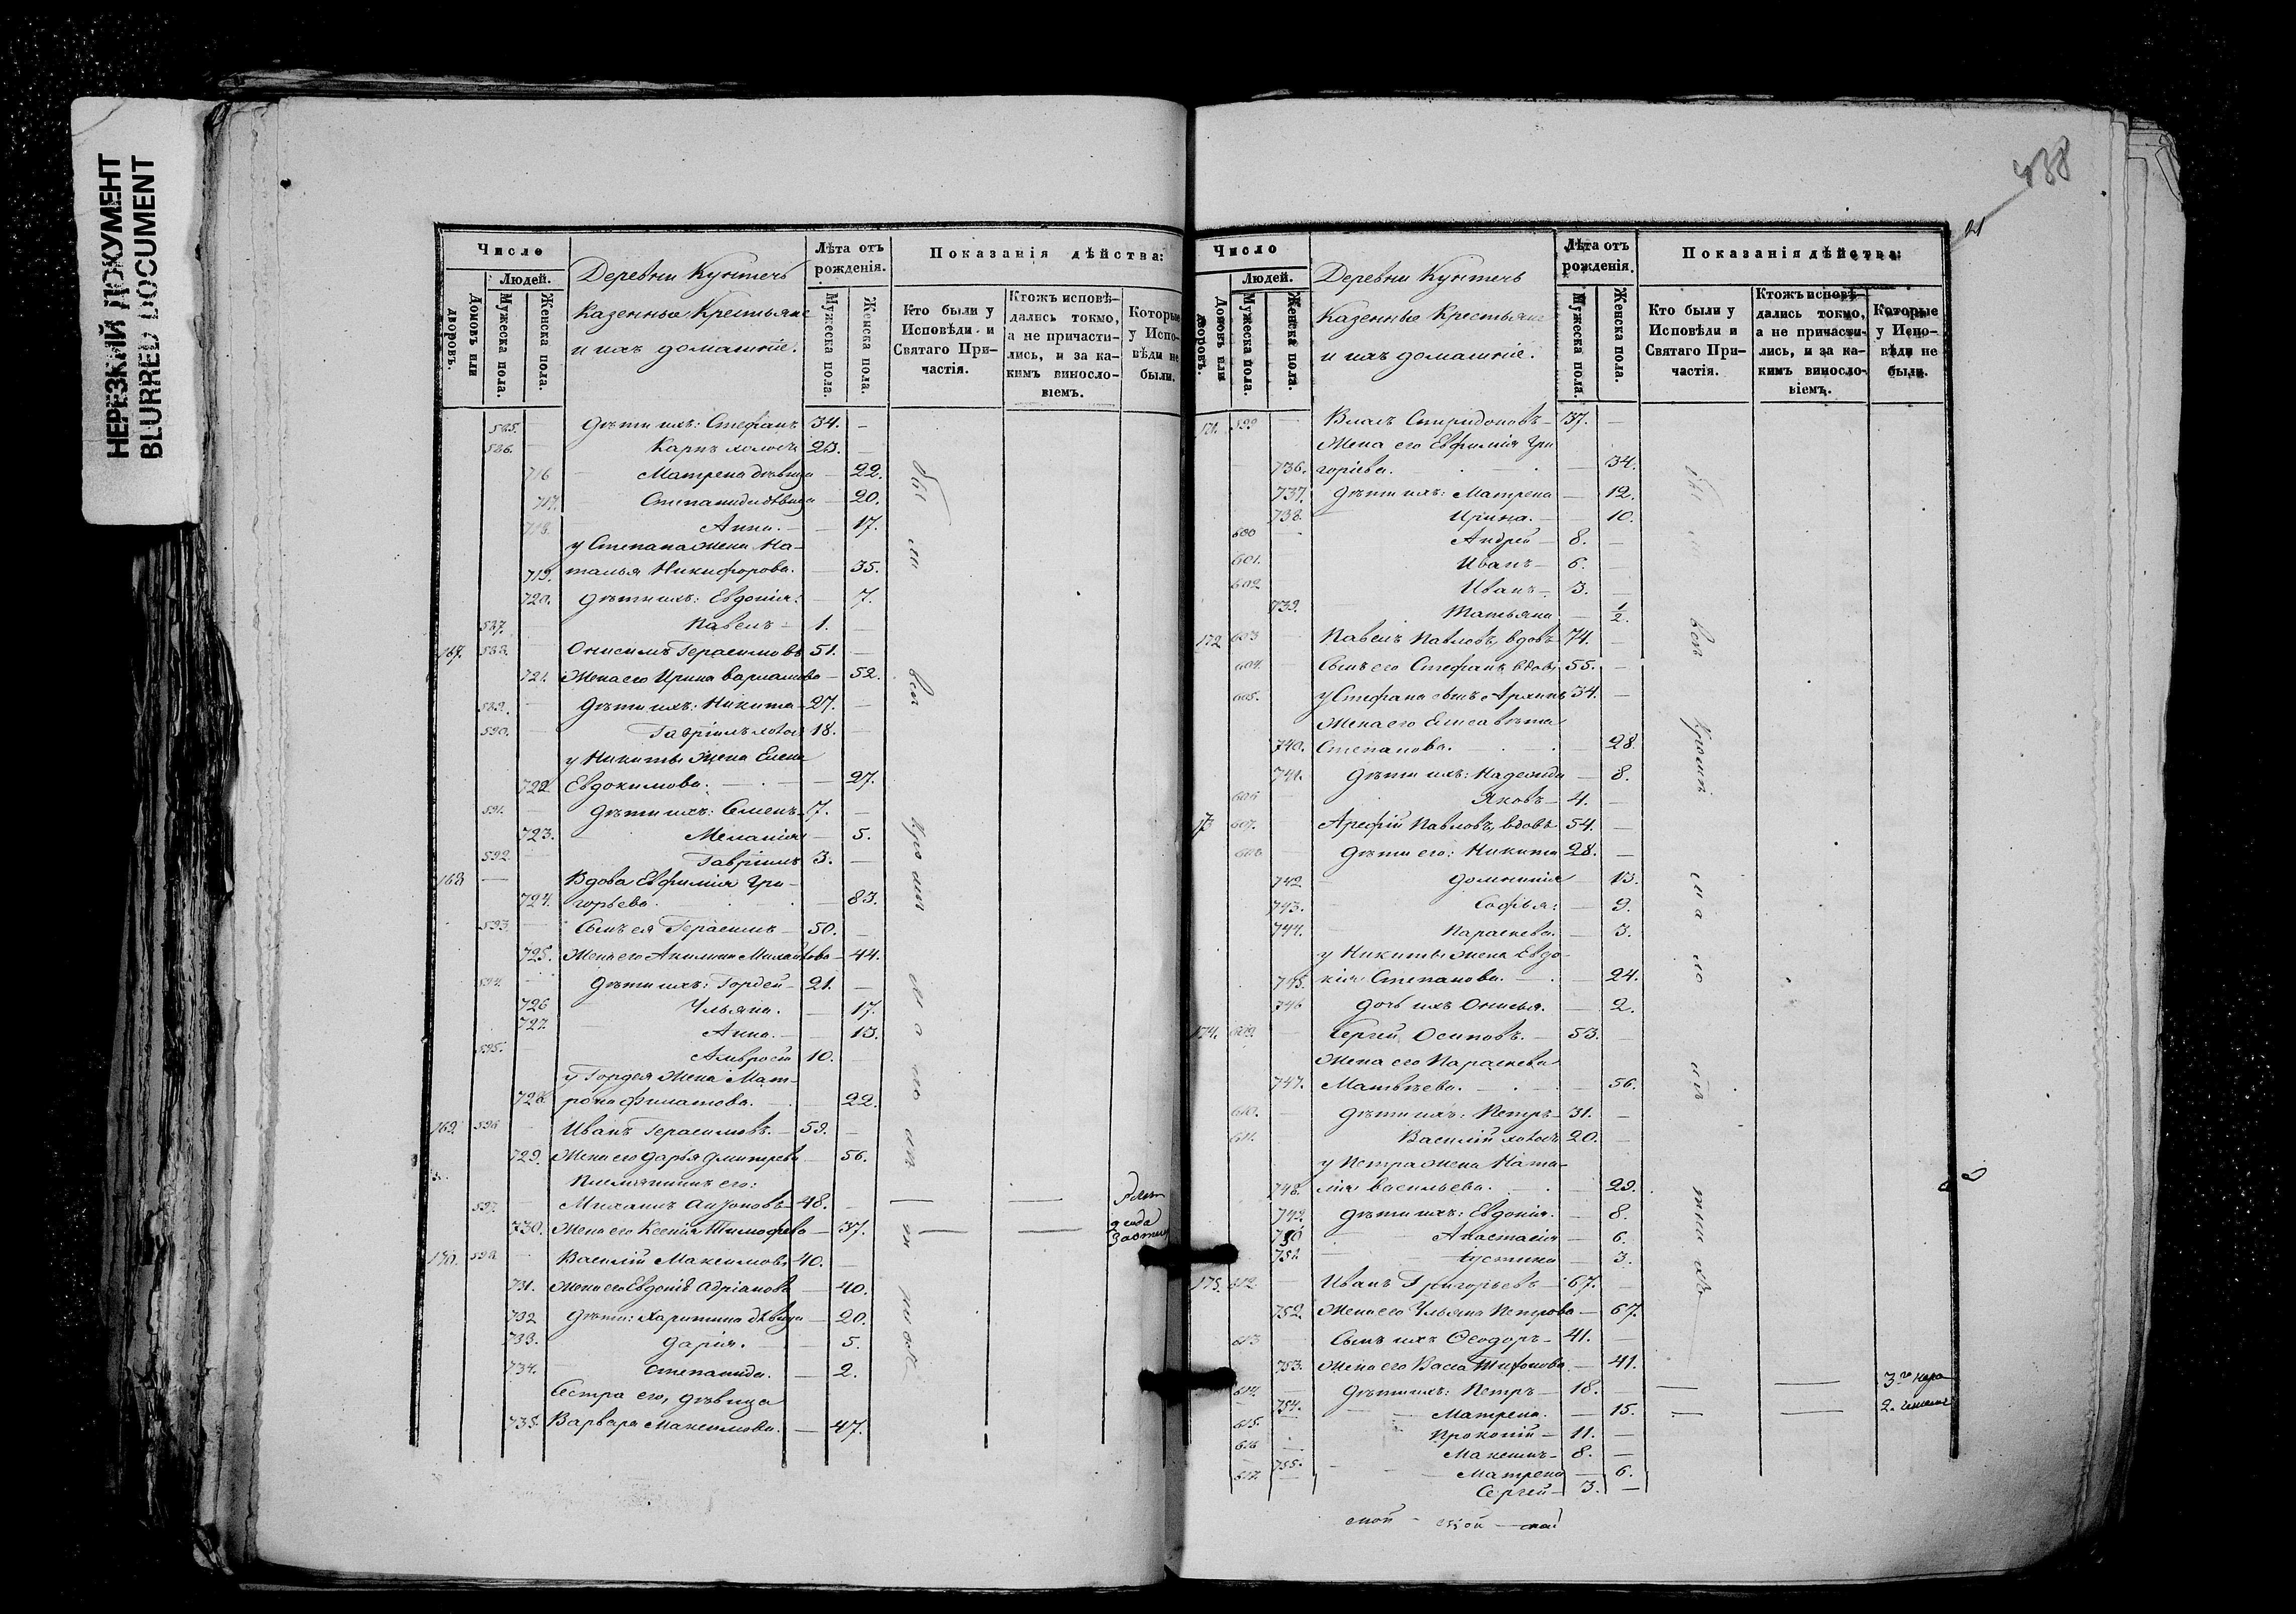 НЕРЕЗКИЙ ДОКУМЕНТ
BLURRED DOCUMENT
438
21
Число
Людей.
Домовъ или дворовъ.
Мужеска пола.
Женска пола.
Деревни Кунтечь
Казенные Крестьяне
и ихъ домашніе.
Лѣта отъ рожденія.
Мужеска пола.
Женска пола.
Показанія дѣйства:
Кто были у Исповѣди и Святаго Причастія.
Ктожъ исповѣдались токмо, а не причастились, и за какимъ винословіемъ.
Которые у Исповѣди не были.
585. дѣти ихъ: Стефанъ 34. —
586. Карпъ холостъ 23. —
716 Матрена дѣвица — 22.
717. Степанида дѣвица — 20.
718. Анна. — 17.
у Степана жена На-
719. талья Никифорова. — 35.
720. дѣти ихъ: Евдокія: — 7.
587. Павелъ — 1. —
167. 588. Онисимъ Герасимовъ 51. —
721. Жена его Ирина Варламова — 52.
589. дѣти ихъ: Никита — 27. —
590. Гавріилъ холост 18. —
у Никиты жена Елена
722 Евдокимова. — 27.
591. дѣти ихъ: Семенъ — 7. —
723. Меланія — 5.
592. Гавріилъ 3. —
168 — Вдова Евфимія Гри-
724. горьева. — 83.
593. Сынъ ея Герасимъ — 50. —
725. Жена его Акилина Михайлова — 44.
594. дѣти ихъ: Гордей — 21. —
726 Ульяна. — 17.
727. Анна. — 13.
595. Амвросій 10. —
у Гордея жена Мат-
728. рона Филатова. — 22.
169. 596 Иванъ Герасимовъ. — 59. —
729. Жена его Дарья Дмитрева — 56.
Племянникъ его:
597. Михаилъ Антоновъ — 48. —
730. Жена его Ксенія Тимофева — 37.
170. 598 Василій Максимовъ 40. —
731. Жена его Евдокія Адріановъ — 40.
732 дѣти: Харитина дѣвица — 20.
733. Дарія. — 5.
734. Степанида. — 2.
Сестра его, дѣвица
735. Варвара Максимова. — 47.
Число
Людей.
Домовъ или дворовъ.
Мужеска пола.
Женска пола.
Деревни Кунтечь
Казенные Крестьяне
и ихъ домашніе.
Лѣта отъ рожденія.
Мужеска пола.
Женска пола.
Показанія дѣйства:
Кто были у Исповѣди и Святаго Причастія.
Ктожъ исповѣдались токмо, а не причастились, и за какимъ винословіемъ.
Которые у Исповѣди не были.
171. 599 Власъ Спиридоновъ — 37. —
Жена его Евфимія Гри
736. горіева. — 34.
737. дѣти ихъ: Матрена — 12.
738. Ирина. — 10.
600 Андрей — 8. —
601. Иванъ — 6. —
602 Иванъ — 3. —
739. Татьяна — 1/2.
172 603 Павелъ Павловъ, вдовъ 74. —
604. Сынъ его Стефанъ вдовъ 55. —
605. у Стефана сынъ Архипъ 34. —
Жена его Елисавѣта
740. Степанова. — 28.
741. дѣти ихъ: Надежда — 8.
606 Яковъ — 4. —
173 607. Арефій Павловъ, вдовъ 54. —
608 дѣти его: Никита 28. —
742 Домникія — 13.
743. Софья: — 9.
744. Параскева. — 3.
у Никиты жена Евдо-
745. кія Степанова. — 24.
746 дочь ихъ Онисья. — 2.
174. 609. Сергій Осиповъ. — 53. —
Жена его Параскева
747. Матвѣева. — 56.
610. дѣти ихъ: Петръ — 31. —
611. Василій холост 20. —
у Петра жена Ната-
748. лія Васильева. — 29.
749. дѣти ихъ: Евдокія. — 8.
750 Анастасія — 6.
751 Іустина — 3.
175. 612. Иванъ Григорьевъ — 67. —
752. Жена его Ульяна Петрова — 67.
613 Сынъ ихъ Ѳеодоръ — 41. —
753. Жена его Васса Тихонова — 41.
614. дѣти ихъ: Петръ — 18. —
754. Матрена. — 15.
615. Прокопій — 11. —
616 Максимъ — 8. —
755. Матрена — 6.
617. Сергей — 3. —